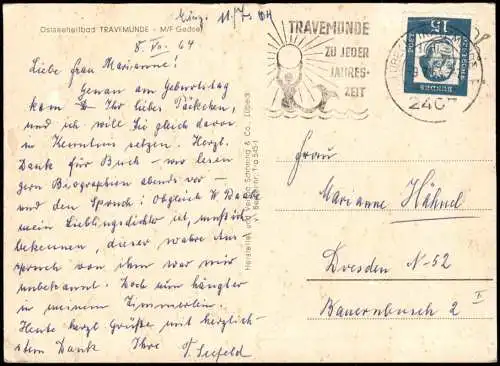 Ostseeheilbad TRAVEMÜNDE - M/F Gedser
Eing. 11. 7.
8. VII. 64
Liebe Frau Marianne!
Genau am Geburtstag
kam Ihr liebes Päckchen,
und ich will Sie gleich davon
in Kenntnis setzen. Herzl.
Dank für Buch - wo lesen
gern Biographien abends vor -
und den Spruch: Obgleich W. Raabe
mein Lieblingsdichter ist, muß ich
bekennen, dieser wahre Aus-
spruch von ihm war mir
unbekannt. Hoch
in meinem Zimmerlein.
Heute herzl. Grüße mit herzlich-
stem Dank Ihre
T. Seefeld
Hersteller und Verlag: Schöning & Co., Lübeck
TRAVEMÜNDE
ZU JEDER
JAHRES-
ZEIT
DEUTSCHE
BUNDES
POST
15
LÜBECK
24
Frau
Marianne Hähnel
Dresden N-52
Bauernbusch 2 I